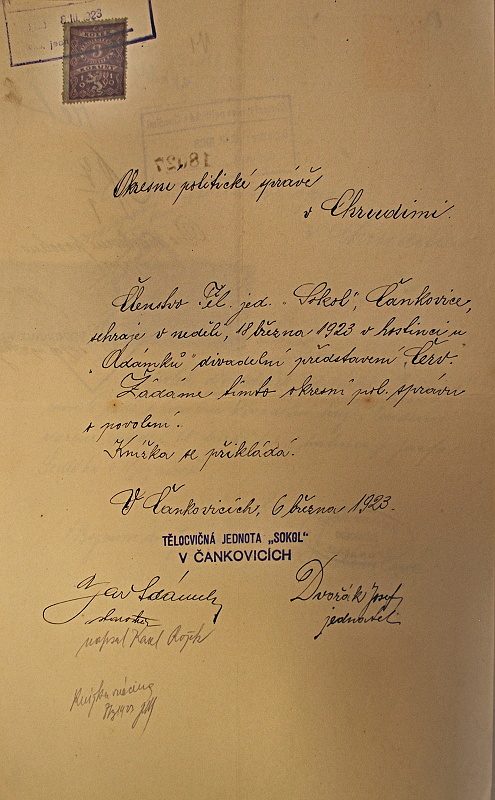 8.III.1923
KOLEK
3
KORUNY
Okresní politické správě
v Chrudimi.
Členstvo Těl. jed. „Sokol", Čankovice,
sehraje v neděli, 18 března 1923 v hostinci u
„Adámků" divadelní představení „Červ".
Žádáme tímto okresní pol. správu
o povolení.
Knížka se přikládá.
V Čankovicích, 6 března 1923.
TĚLOCVIČNÁ JEDNOTA „SOKOL"
V ČANKOVICÍCH
Adámek
starosta
Dvořák Josef
jednatel
napsal Karel
Knížka vrácena